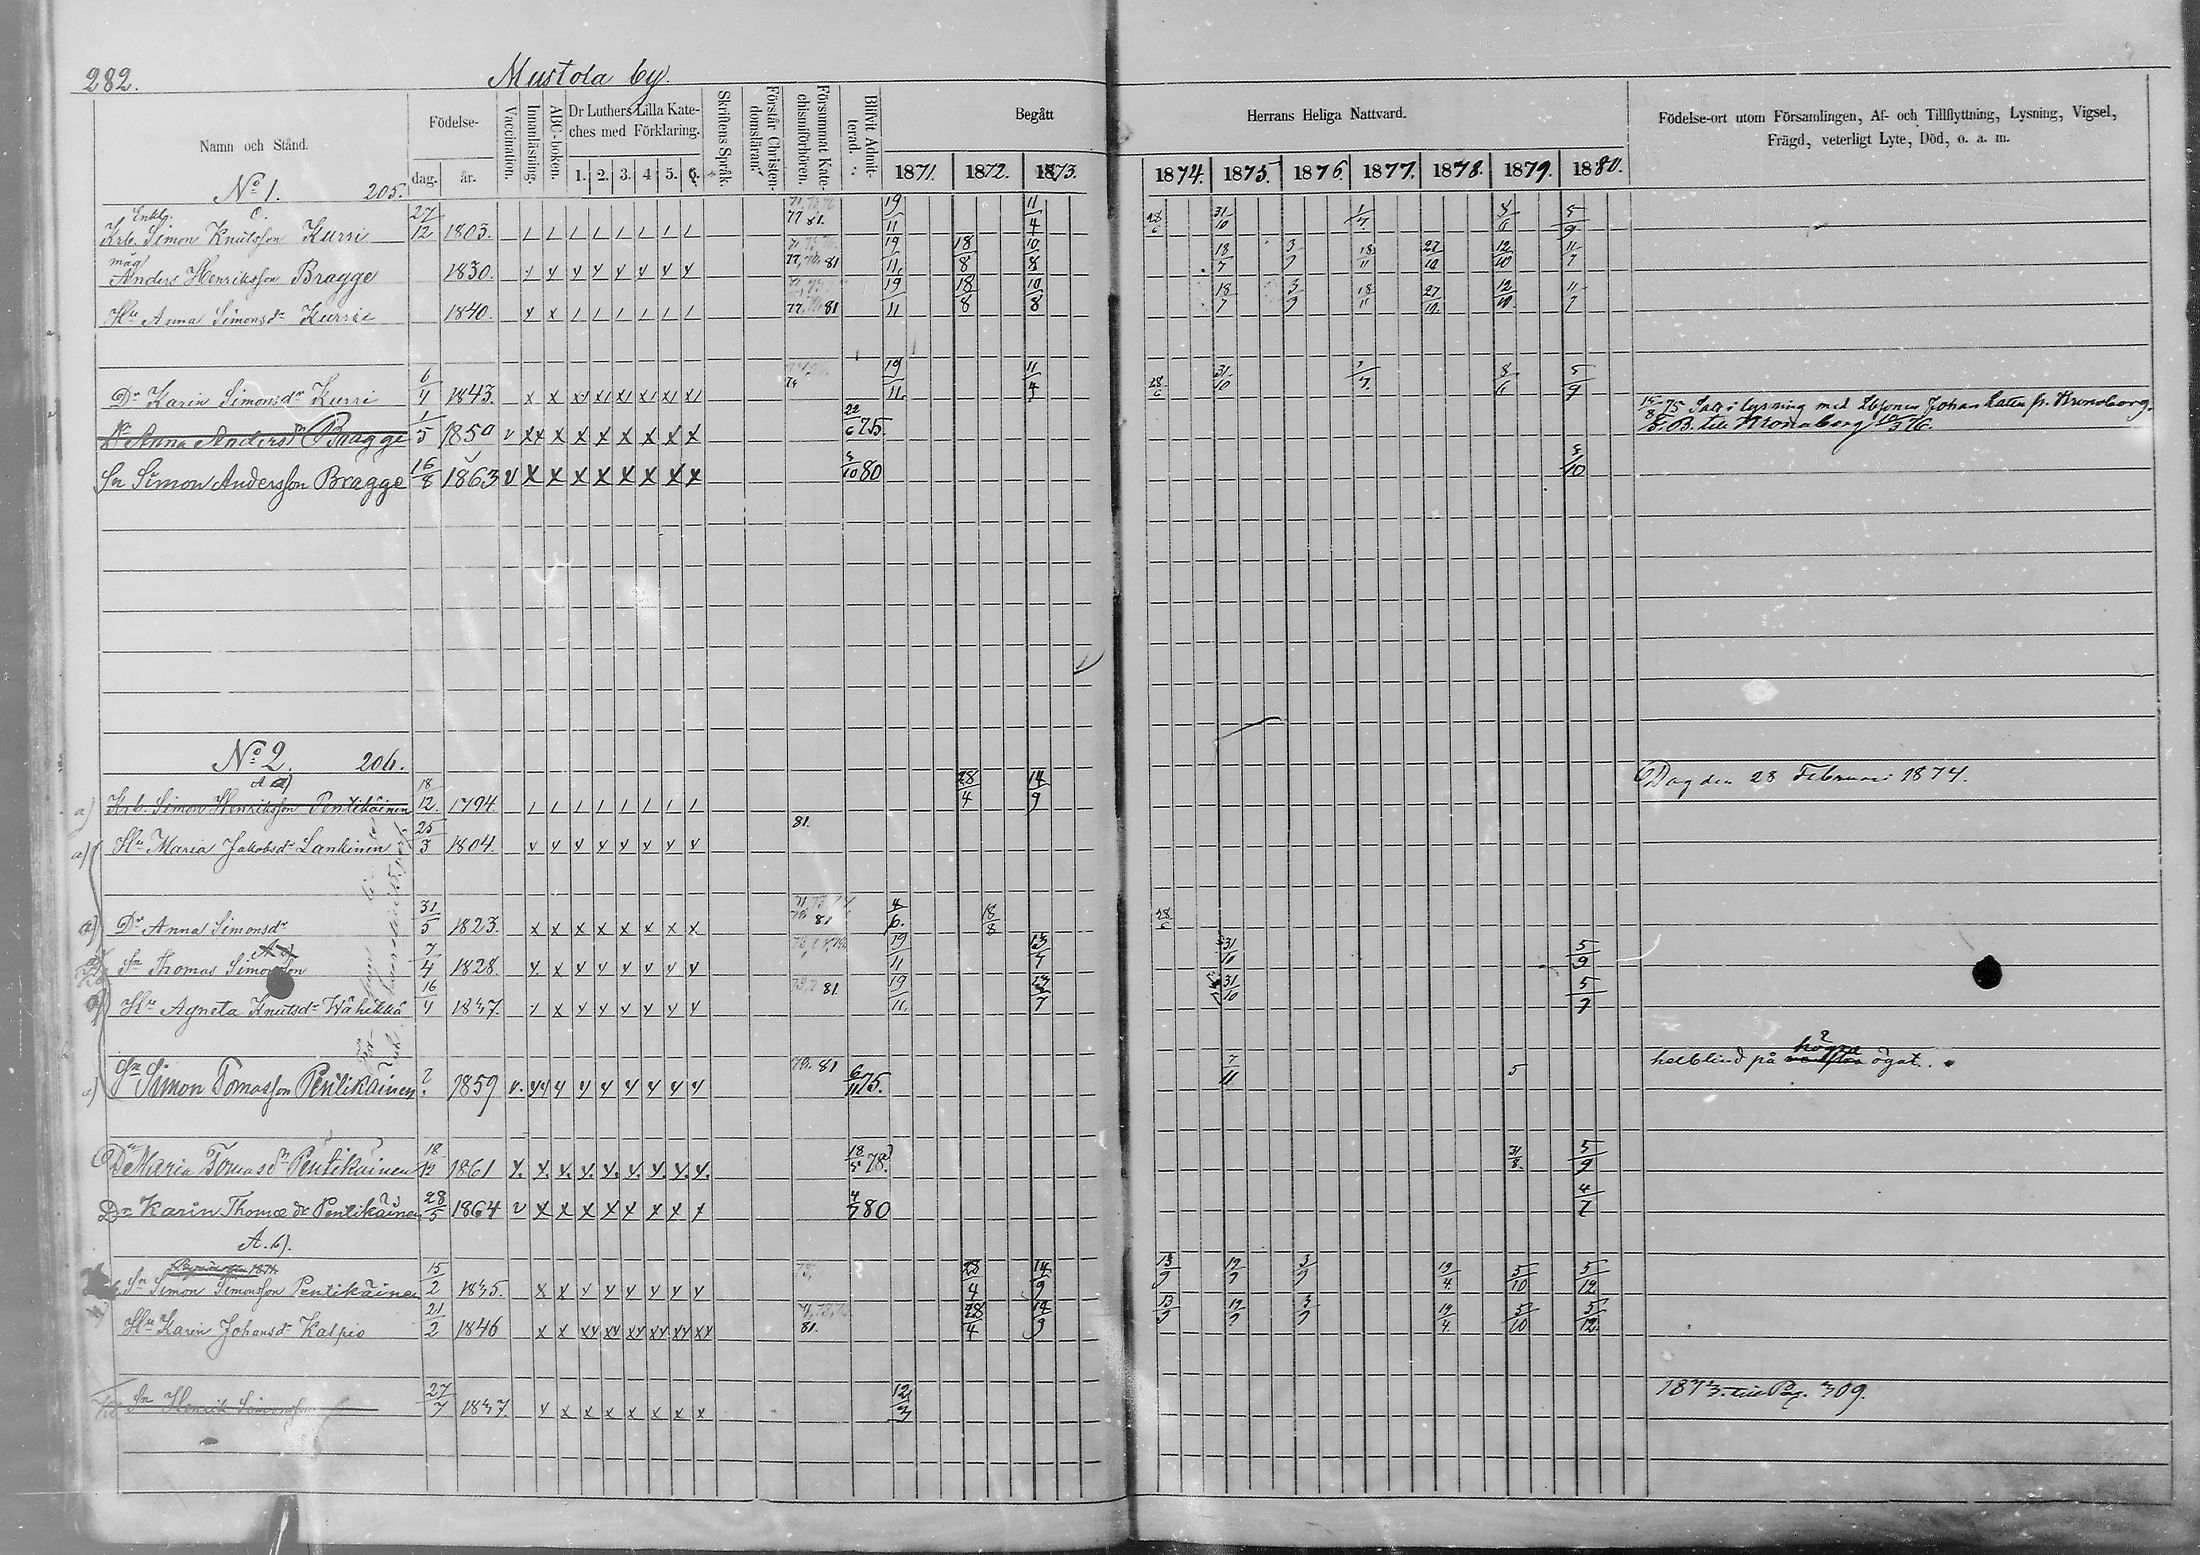 282. Mustola by.
Namn och Stånd.
Födelse- dag. år.
Vaccination.
Innanläsning.
ABC-boken.
Dr Luthers Lilla Kate-
ches med Förklaring.
1. 2. 3. 4. 5. 6.
Skriftens Språk.
Förstår Christen-
domsläran.
Försummat Kate-
chismiförhören.
Blifvit Admit-
terad.
Begått Herrans Heliga Nattvard.
1871. 1872. 1873. 1874. 1875. 1876. 1877. 1878. 1879. 1880.
Födelse-ort utom Församlingen, Af- och Tillflyttning, Lysning, Vigsel,
Frägd, veterligt Lyte, Död, o. a. m.
No 1. 205.
Enkl.
Krb. Simon Knutsson Kurri 27/12 1803. 77 81. 19/11 11/4 28/6 31/10 1/7 8/6 5/9
måg
Anders Henriksson Bragge 1830. 81 19/11 18/8 10/8 18/7 3/9 18/11 27/10 12/10 11/7
Hu Anna Simonsdr Kurri 1840. 81 19/11 18/8 10/8 18/7 3/9 18/11 27/10 12/10 11/7
Dr Karin Simonsdr Kurri 6/4 1843. 19/11 11/4 28/6 31/10 1/7 8/6 5/9
Dr Anna Andersdr Bragge 1/5 1850 v 22/6 75. 15/8 75 lysning med Johan Laten fr. Kronoborg.
B. till Kronoborg 76.
Sn Simon Andersson Bragge 16/8 1863 v 3/10 80 3/10
No 2. 206.
A a)
a) Krb. Simon Henriksson Pentikäinen 18/12. 1794. 28/4 14/9 Dog den 28 Februari 1874.
a) Hu Maria Jakobsdr Lankinen 25/3 1804. 81.
a) Dr Anna Simonsdr 31/5 1823. 81 4/6. 18/8 28/6
Sn Thomas Simonsson 7/4 1828. 19/11 13/7 31/10 5/9
Hu Agneta Knutsdr Wähikkä 16/4 1837. 81. 19/11. 13/7 31/10 5/7
Sn Simon Tomasson Pentikäinen 1859 v. 81 6/11 75. 7/11 5 helblind på högra ögat.
Dr Maria Tomasdr Pentikäinen 18/12 1861 18/5 78. 31/8. 5/9
Dr Karin Thomædr Pentikäinen 28/5 1864 v 4/7 80 4/7
A. b).
Sn Simon Simonsson Pentikäinen 15/2 1835. 28/4 14/9 13/9 19/9 3/9 19/4. 5/10 5/12
Hu Karin Johansdr Kalpio 21/2 1846 81. 28/4 14/9 13/9 19/9 3/9 19/4. 5/10 5/12.
Sn Henrik Simonsson 27/7 1837. 12/3 1873. till Pag. 309.